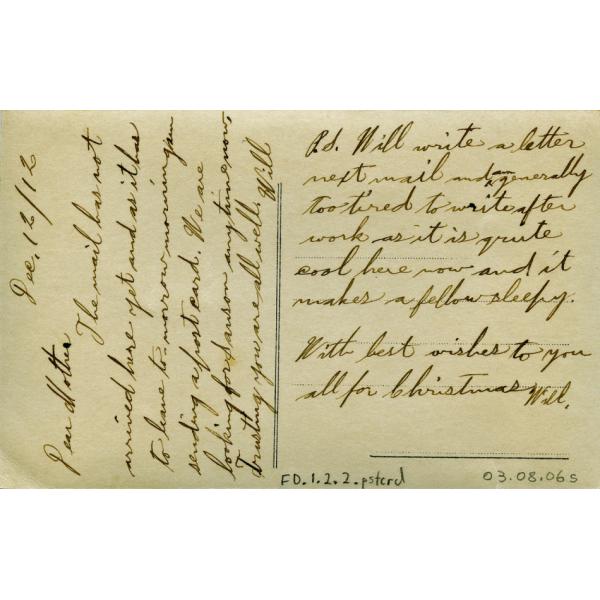 Dec, 12/12
Dear Mother
The mail has not
arrived here yet and as it has
to leave to-morrow morning am
sending a post card. We are
looking for Sanson any time now,
trusting you are all well. Will
P.S. Will write a letter
next mail and am generally
too tired to write after
work as it is quite
cool here now and it
makes a fellow sleepy.
With best wishes to you
all for Christmas
Will.
FD.1.2.2.pstcrd
03.08.06s